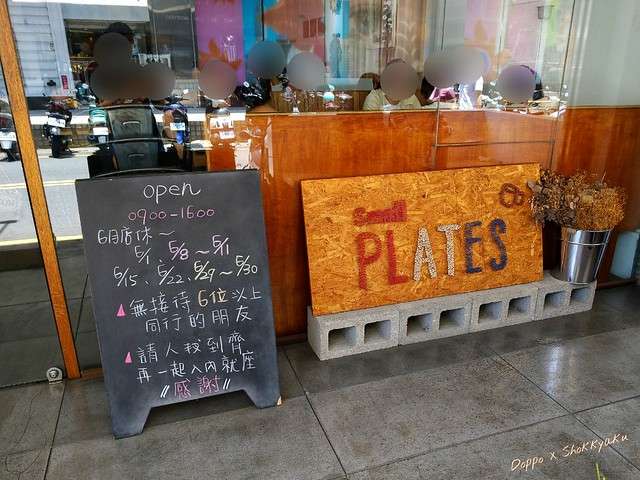 open
0900-1600
6月店休～
5/1、5/8～5/11
5/15、5/22、5/29～5/30
無接待6位以上
同行的朋友
請人數到齊
再一起入內就座
〃感謝〃
Small
PLATES
Doppo x Shokkyaku